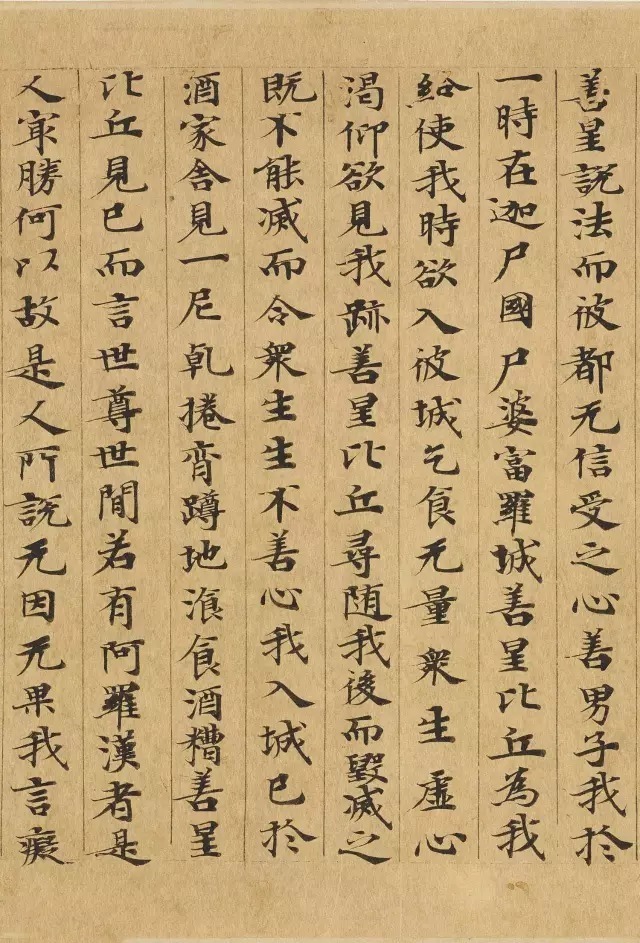 善星說法而彼都无信受之心善男子我於
一時在迦尸國尸婆富羅城善星比丘為我
給使我時欲入彼城乞食无量衆生虛心
渴仰欲見我跡善星比丘尋随我後而毀滅之
既不能滅而令衆生生不善心我入城已於
酒家舍見一尼乹捲脊蹲地湌食酒糟善星
比丘見已而言世尊世間若有阿羅漢者是
人冣勝何以故是人所說无因无果我言癡